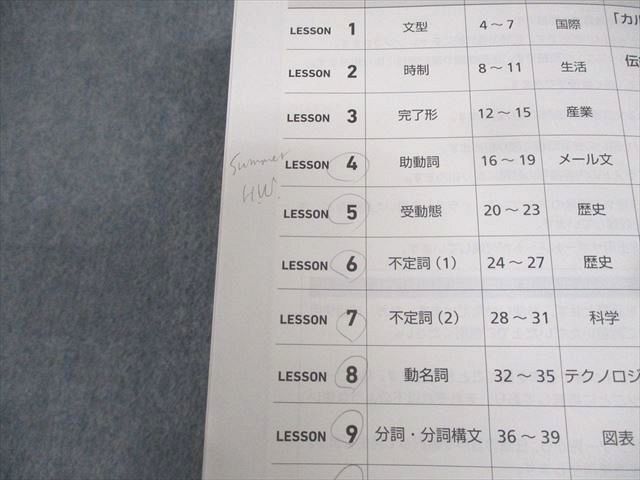 LESSON 1 文型 4～7 国際 「カル
LESSON 2 時制 8～11 生活 伝
LESSON 3 完了形 12～15 産業
Summer
LESSON 4 助動詞 16～19 メール文
H.W.
LESSON 5 受動態 20～23 歴史
LESSON 6 不定詞（1） 24～27 歴史
LESSON 7 不定詞（2） 28～31 科学
LESSON 8 動名詞 32～35 テクノロジ
LESSON 9 分詞・分詞構文 36～39 図表